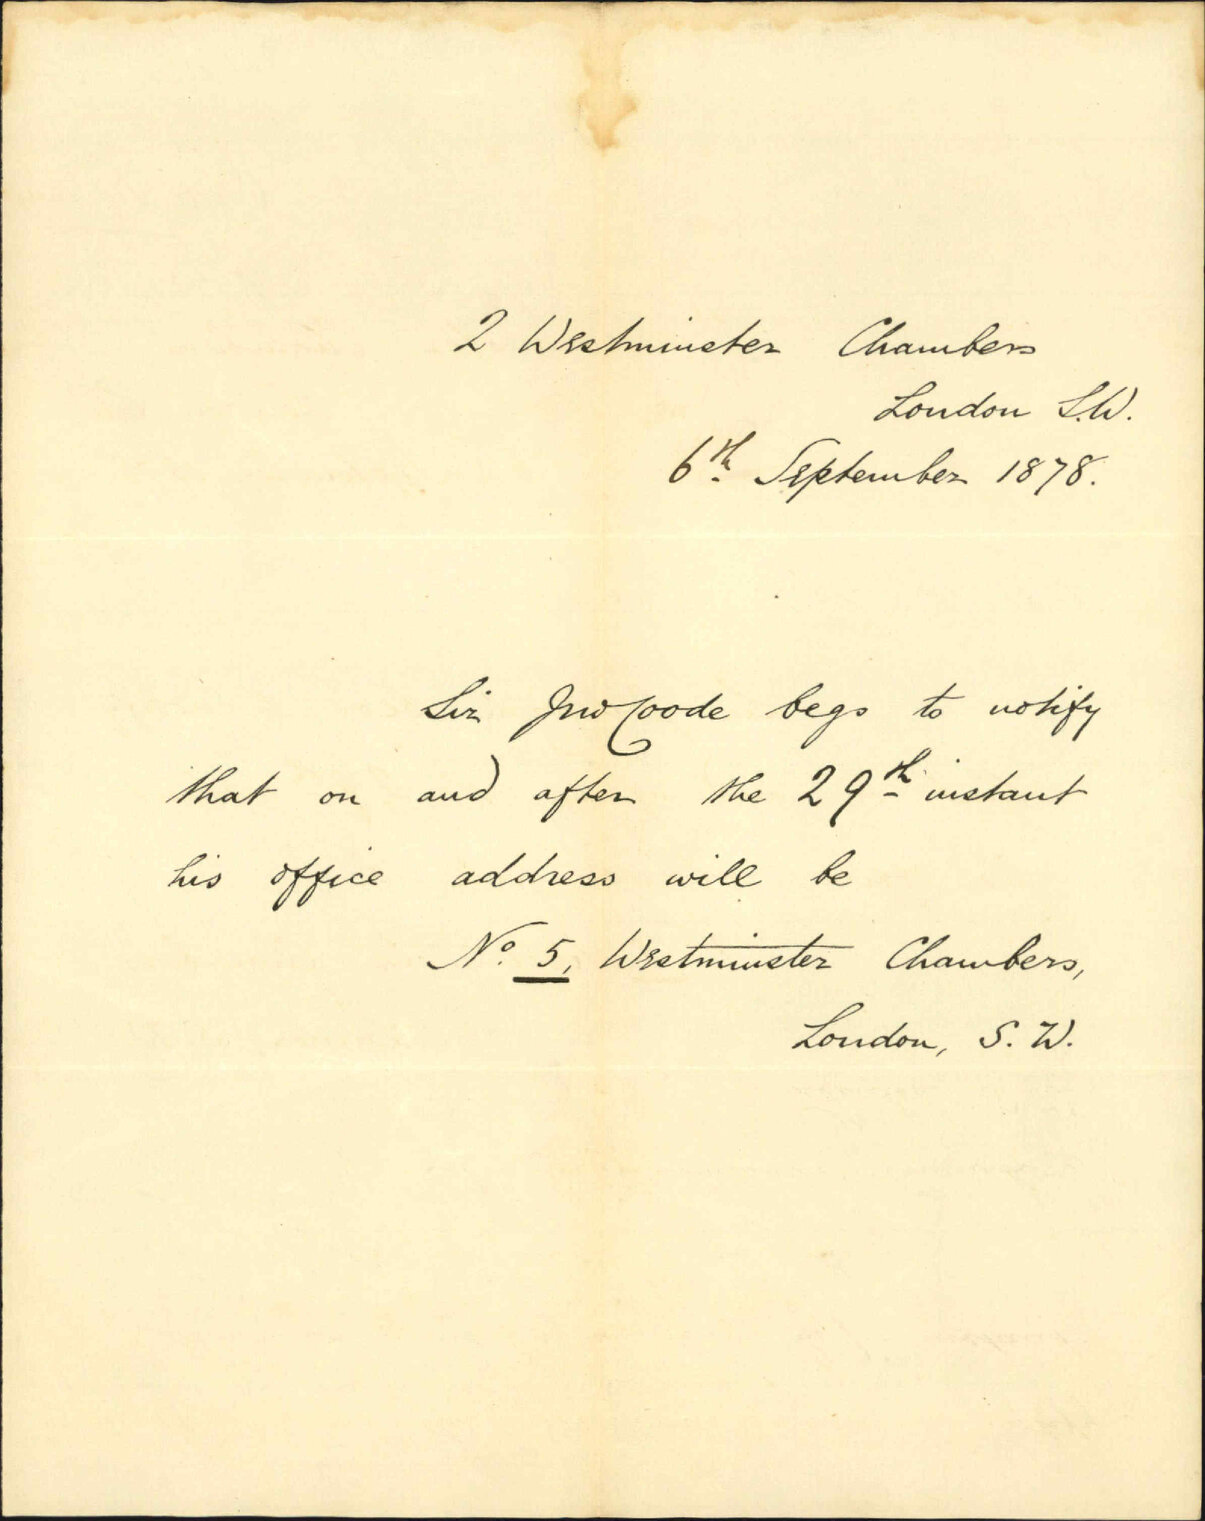 2 Westminster Chambers
London S.W.
6th September 1878.
Sir Jno Coode begs to notify
that on and after the 29th instant
his office address will be
No. 5, Westminster Chambers,
London, S. W.